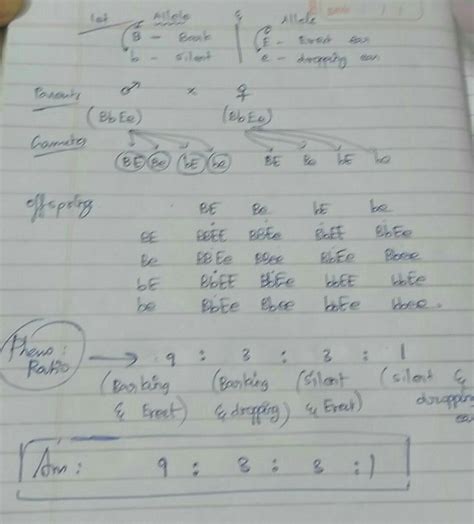 Let Allele & Allele
B - Bark E - Erect ear
b - silent e - dropping ear
Parents ♂ x ♀
(BbEe) (BbEe)
Gametes BE Be bE be BE Be bE be
offspring BE Be bE be
BE BBEE BBEe BbEE BbEe
Be BBEe BBee BbEe Bbee
bE BbEE BbEe bbEE bbEe
be BbEe Bbee bbEe bbee
Pheno: Ratio → 9 : 3 : 3 : 1
(Barking (Barking (Silent (silent &
& Erect) & dropping) & Erect) dropping
ear
Ans: 9 : 3 : 3 : 1